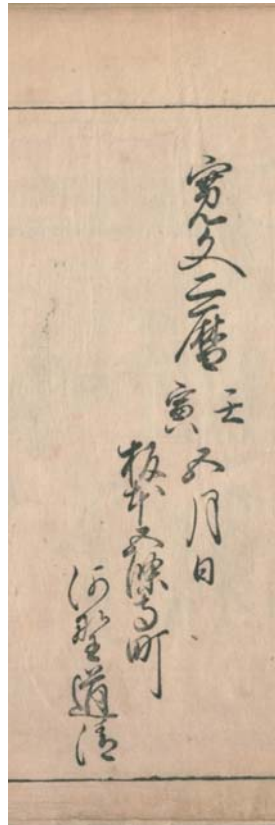 寛文二暦壬寅五月日
板本五條寺町
河野道清